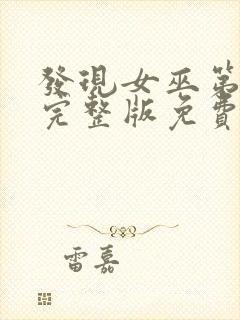 發現女巫第
完整版免費
雷嘉